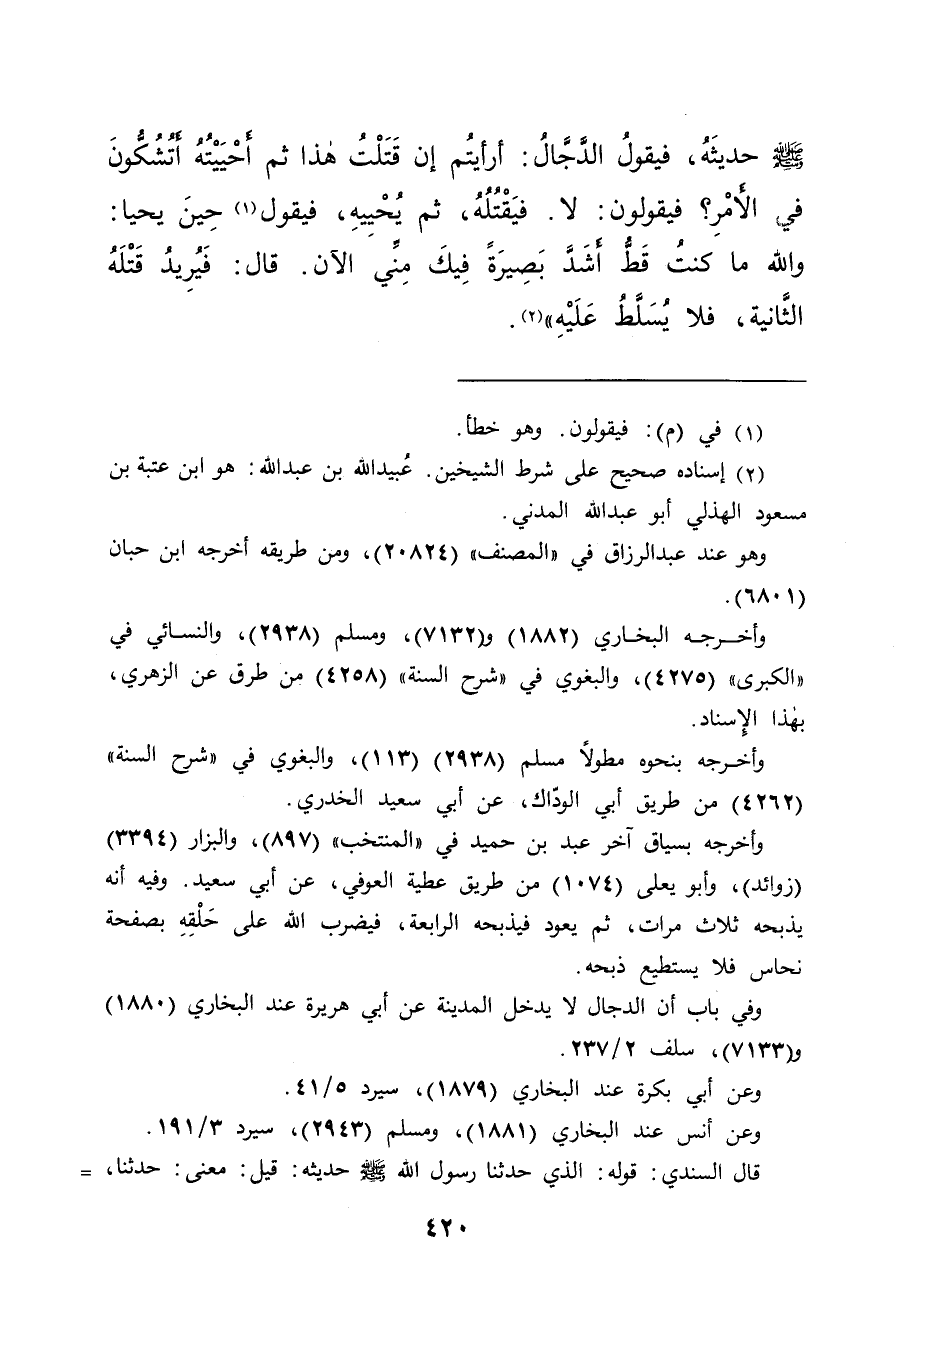 ﷺ حديثَهُ، فيقولُ الدَّجَّالُ: أرأيتُم إن قَتَلْتُ هٰذا ثم أَحْيَيْتُهُ أَتُشكُّونَ
في الأَمْرِ؟ فيقولون: لا. فيَقْتُلُهُ، ثم يُحْيِيهِ، فيقول(١) حِينَ يحيا:
والله ما كنتُ قَطُّ أَشَدَّ بَصِيرَةً فِيكَ مِنِّي الآن. قال: فَيُرِيدُ قَتْلَهُ
الثَّانية، فلا يُسَلَّطُ عَلَيْهِ»(٢).
(١) في (م): فيقولون. وهو خطأ.
(٢) إسناده صحيح على شرط الشيخين. عُبيدالله بن عبدالله: هو ابن عتبة بن
مسعود الهذلي أبو عبدالله المدني.
وهو عند عبدالرزاق في «المصنف» (٢٠٨٢٤)، ومن طريقه أخرجه ابن حبان
(٦٨٠١).
وأخرجه البخاري (١٨٨٢) و(٧١٣٢)، ومسلم (٢٩٣٨)، والنسائي في
«الكبرى» (٤٢٧٥)، والبغوي في «شرح السنة» (٤٢٥٨) من طرق عن الزهري،
بهٰذا الإِسناد.
وأخرجه بنحوه مطولاً مسلم (٢٩٣٨) (١١٣)، والبغوي في «شرح السنة»
(٤٢٦٢) من طريق أبي الودّاك، عن أبي سعيد الخدري.
وأخرجه بسياق آخر عبد بن حميد في «المنتخب» (٨٩٧)، والبزار (٣٣٩٤)
(زوائد)، وأبو يعلى (١٠٧٤) من طريق عطية العوفي، عن أبي سعيد. وفيه أنه
يذبحه ثلاث مرات، ثم يعود فيذبحه الرابعة، فيضرب الله على حَلْقِهِ بصفحة
نحاس فلا يستطيع ذبحه.
وفي باب أن الدجال لا يدخل المدينة عن أبي هريرة عند البخاري (١٨٨٠)
و(٧١٣٣)، سلف ٢٣٧/٢.
وعن أبي بكرة عند البخاري (١٨٧٩)، سيرد ٤١/٥.
وعن أنس عند البخاري (١٨٨١)، ومسلم (٢٩٤٣)، سيرد ١٩١/٣.
قال السندي: قوله: الذي حدثنا رسول الله ﷺ حديثه: قيل: معنى: حدثنا، =
٤٢٠